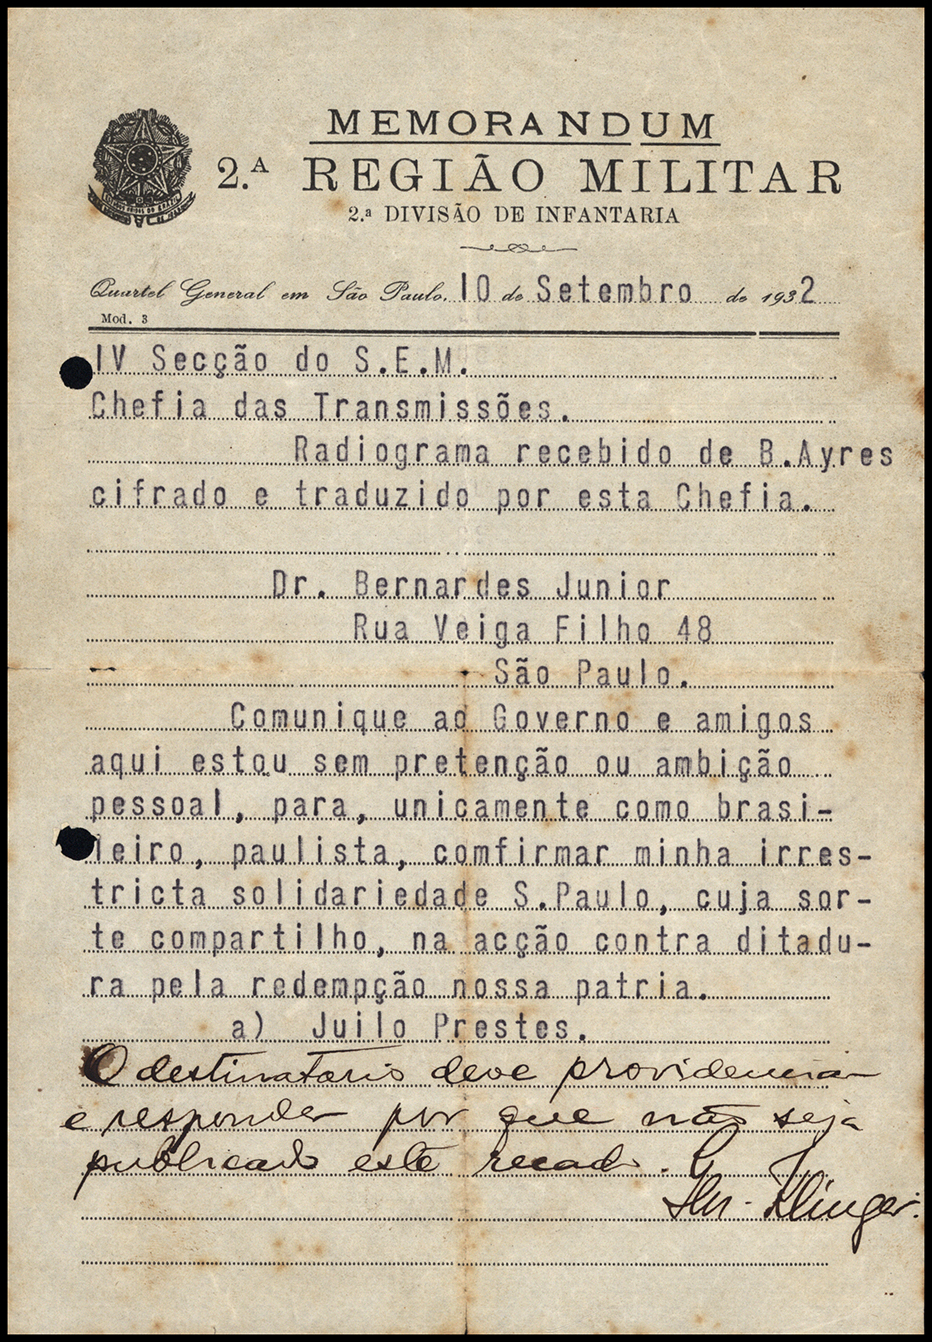 MEMORANDUM
2.ª REGIÃO MILITAR
2.ª DIVISÃO DE INFANTARIA
Quartel General em São Paulo, 10 de Setembro de 1932
Mod. 3
IV Secção do S.E.M.
Chefia das Transmissões.
Radiograma recebido de B.Ayres
cifrado e traduzido por esta Chefia.
Dr. Bernardes Junior
Rua Veiga Filho 48
São Paulo.
Comunique ao Governo e amigos
aqui estou sem pretenção ou ambição
pessoal, para, unicamente como brasi-
leiro, paulista, comfirmar minha irres-
tricta solidariedade S.Paulo, cuja sor-
te compartilho, na acção contra ditadu-
ra pela redempção nossa patria.
a) Juilo Prestes.
O destinatario deve providenciar
e responder por que não seja
publicado este recado. G
Klinger.